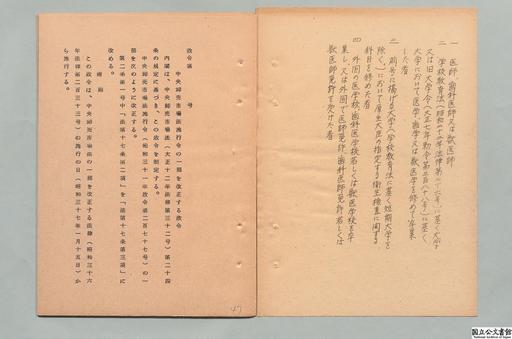 一 医師、歯科医師又は獣医師
二 学校教育法(昭和二十二年法律第二十六号)に基く大学
又は旧大学令(大正七年勅令第三百八十八号)に基く
大学において医学、歯学又は獣医学を修めて卒業
した者
三 前号に掲げる大学(学校教育法に基く短期大学を
除く。)において厚生大臣の指定する衛生検査に関する
科目を修めた者
四 外国の医学校、歯科医学校若しくは獣医学校を卒
業し、又は外国で医師免許、歯科医師免許若しくは
獣医師免許を受けた者
政令第 号
中央卸売市場法施行令の一部を改正する政令
内閣は、中央卸売市場法(大正十二年法律第三十二号)第二十四
条の規定に基づき、この政令を制定する。
中央卸売市場法施行令(昭和三十一年政令第百七十七号)の一
部を次のように改正する。
第二条第一号中「法第十七条第二項」を「法第十七条第三項」に
改める。
附則
この政令は、中央卸売市場法の一部を改正する法律(昭和三十六
年法律第二百三十三号)の施行の日(昭和三十七年一月十五日)か
ら施行する。
47
国立公文書館
National Archives of Japan